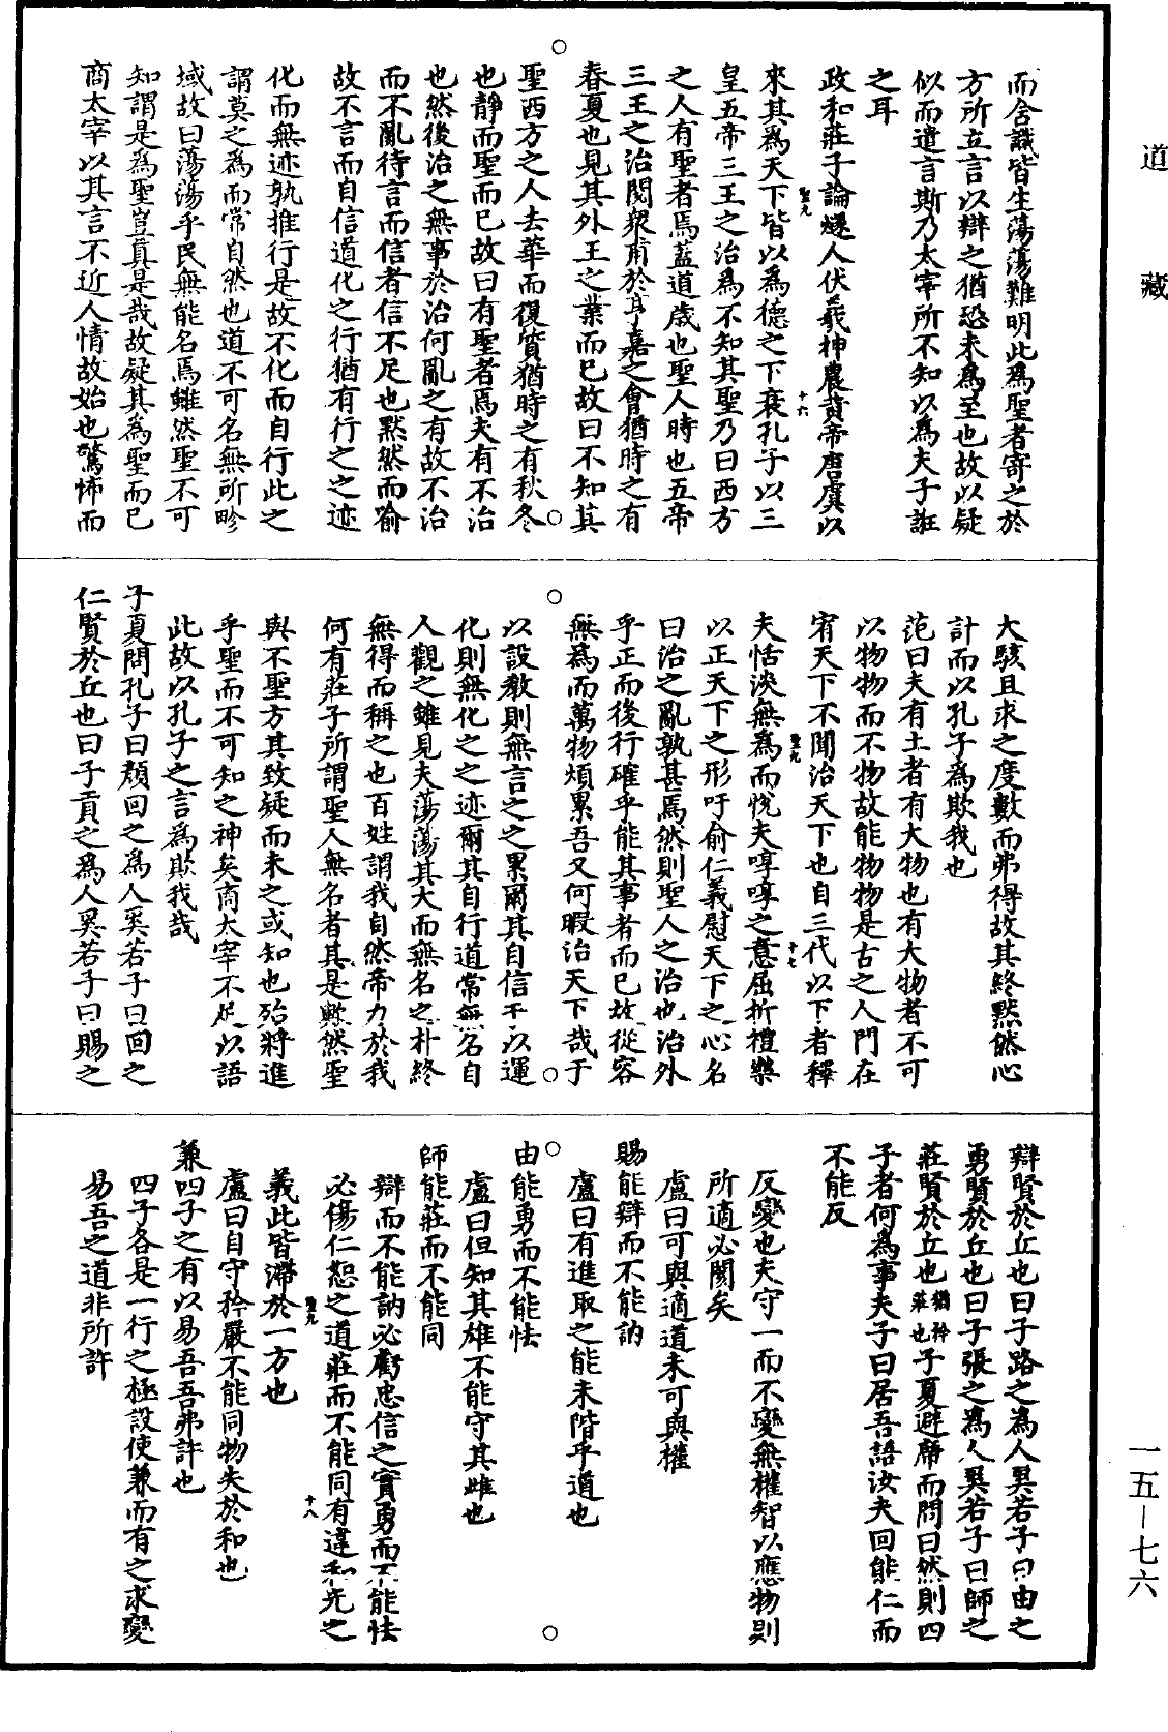 道藏
而含識皆生蕩蕩難明此為聖者寄之於
方所立言以辯之猶恐未為至也故以疑
似而遣言斯乃太宰所不知以為夫子誑
之耳
政和莊子論燧人伏羲神農黃帝唐虞以
來其為天下皆以為德之下衰孔子以三
皇五帝三王之治為不知其聖乃曰西方
之人有聖者焉蓋道歲也聖人時也五帝
三王之治閱衆甫於亨嘉之會猶時之有
春夏也見其外王之業而已故曰不知其
聖西方之人去華而復質猶時之有秋冬
也靜而聖而已故曰有聖者焉夫有不治
也然後治之無事於治何亂之有故不治
而不亂待言而信者信不足也默然而喻
故不言而自信道化之行猶有行之之迹
化而無迹孰推行是故不化而自行此之
謂莫之為而常自然也道不可名無所畛
域故曰蕩蕩乎民無能名焉雖然聖不可
知謂是為聖豈真是哉故疑其為聖而已
商太宰以其言不近人情故始也驚怖而
聖九
十六
大駭且求之度數而弗得故其終默然心
計而以孔子為欺我也
范曰夫有土者有大物也有大物者不可
以物物而不物故能物物是古之人門在
宥天下不聞治天下也自三代以下者釋
夫恬淡無為而悅夫啍啍之意屈折禮樂
以正天下之形吁俞仁義慰天下之心名
曰治之亂孰甚焉然則聖人之治也治外
乎正而後行確乎能其事者而已故從容
無為而萬物煩累吾又何暇治天下哉于
以設教則無言之之累爾其自信于以運
化則無化之之迹爾其自行道常無名自
人觀之雖見夫蕩蕩其大而無名之朴終
無得而稱之也百姓謂我自然帝力於我
何有莊子所謂聖人無名者其是歟然聖
與不聖方其致疑而未之或知也殆將進
乎聖而不可知之神矣商太宰不足以語
此故以孔子之言為欺我哉
子夏問孔子曰顏回之為人奚若子曰回之
仁賢於丘也曰子貢之為人奚若子曰賜之
聖九
十七
辯賢於丘也曰子路之為人奚若子曰由之
勇賢於丘也曰子張之為人奚若子曰師之
莊賢於丘也猶矜莊也子夏避席而問曰然則四
子者何為事夫子曰居吾語汝夫回能仁而
不能反
反變也夫守一而不變無權智以應物則
所適必閡矣
盧曰可與適道未可與權
賜能辯而不能訥
盧曰有進取之能未階乎道也
由能勇而不能怯
盧曰但知其雄不能守其雌也
師能莊而不能同
辯而不能訥必虧忠信之實勇而不能怯
必傷仁恕之道莊而不能同有違和光之
義此皆滯於一方也
盧曰自守矜嚴不能同物失於和也
兼四子之有以易吾吾弗許也
四子各是一行之極設使兼而有之求變
易吾之道非所許
聖九
十八
一五－七六